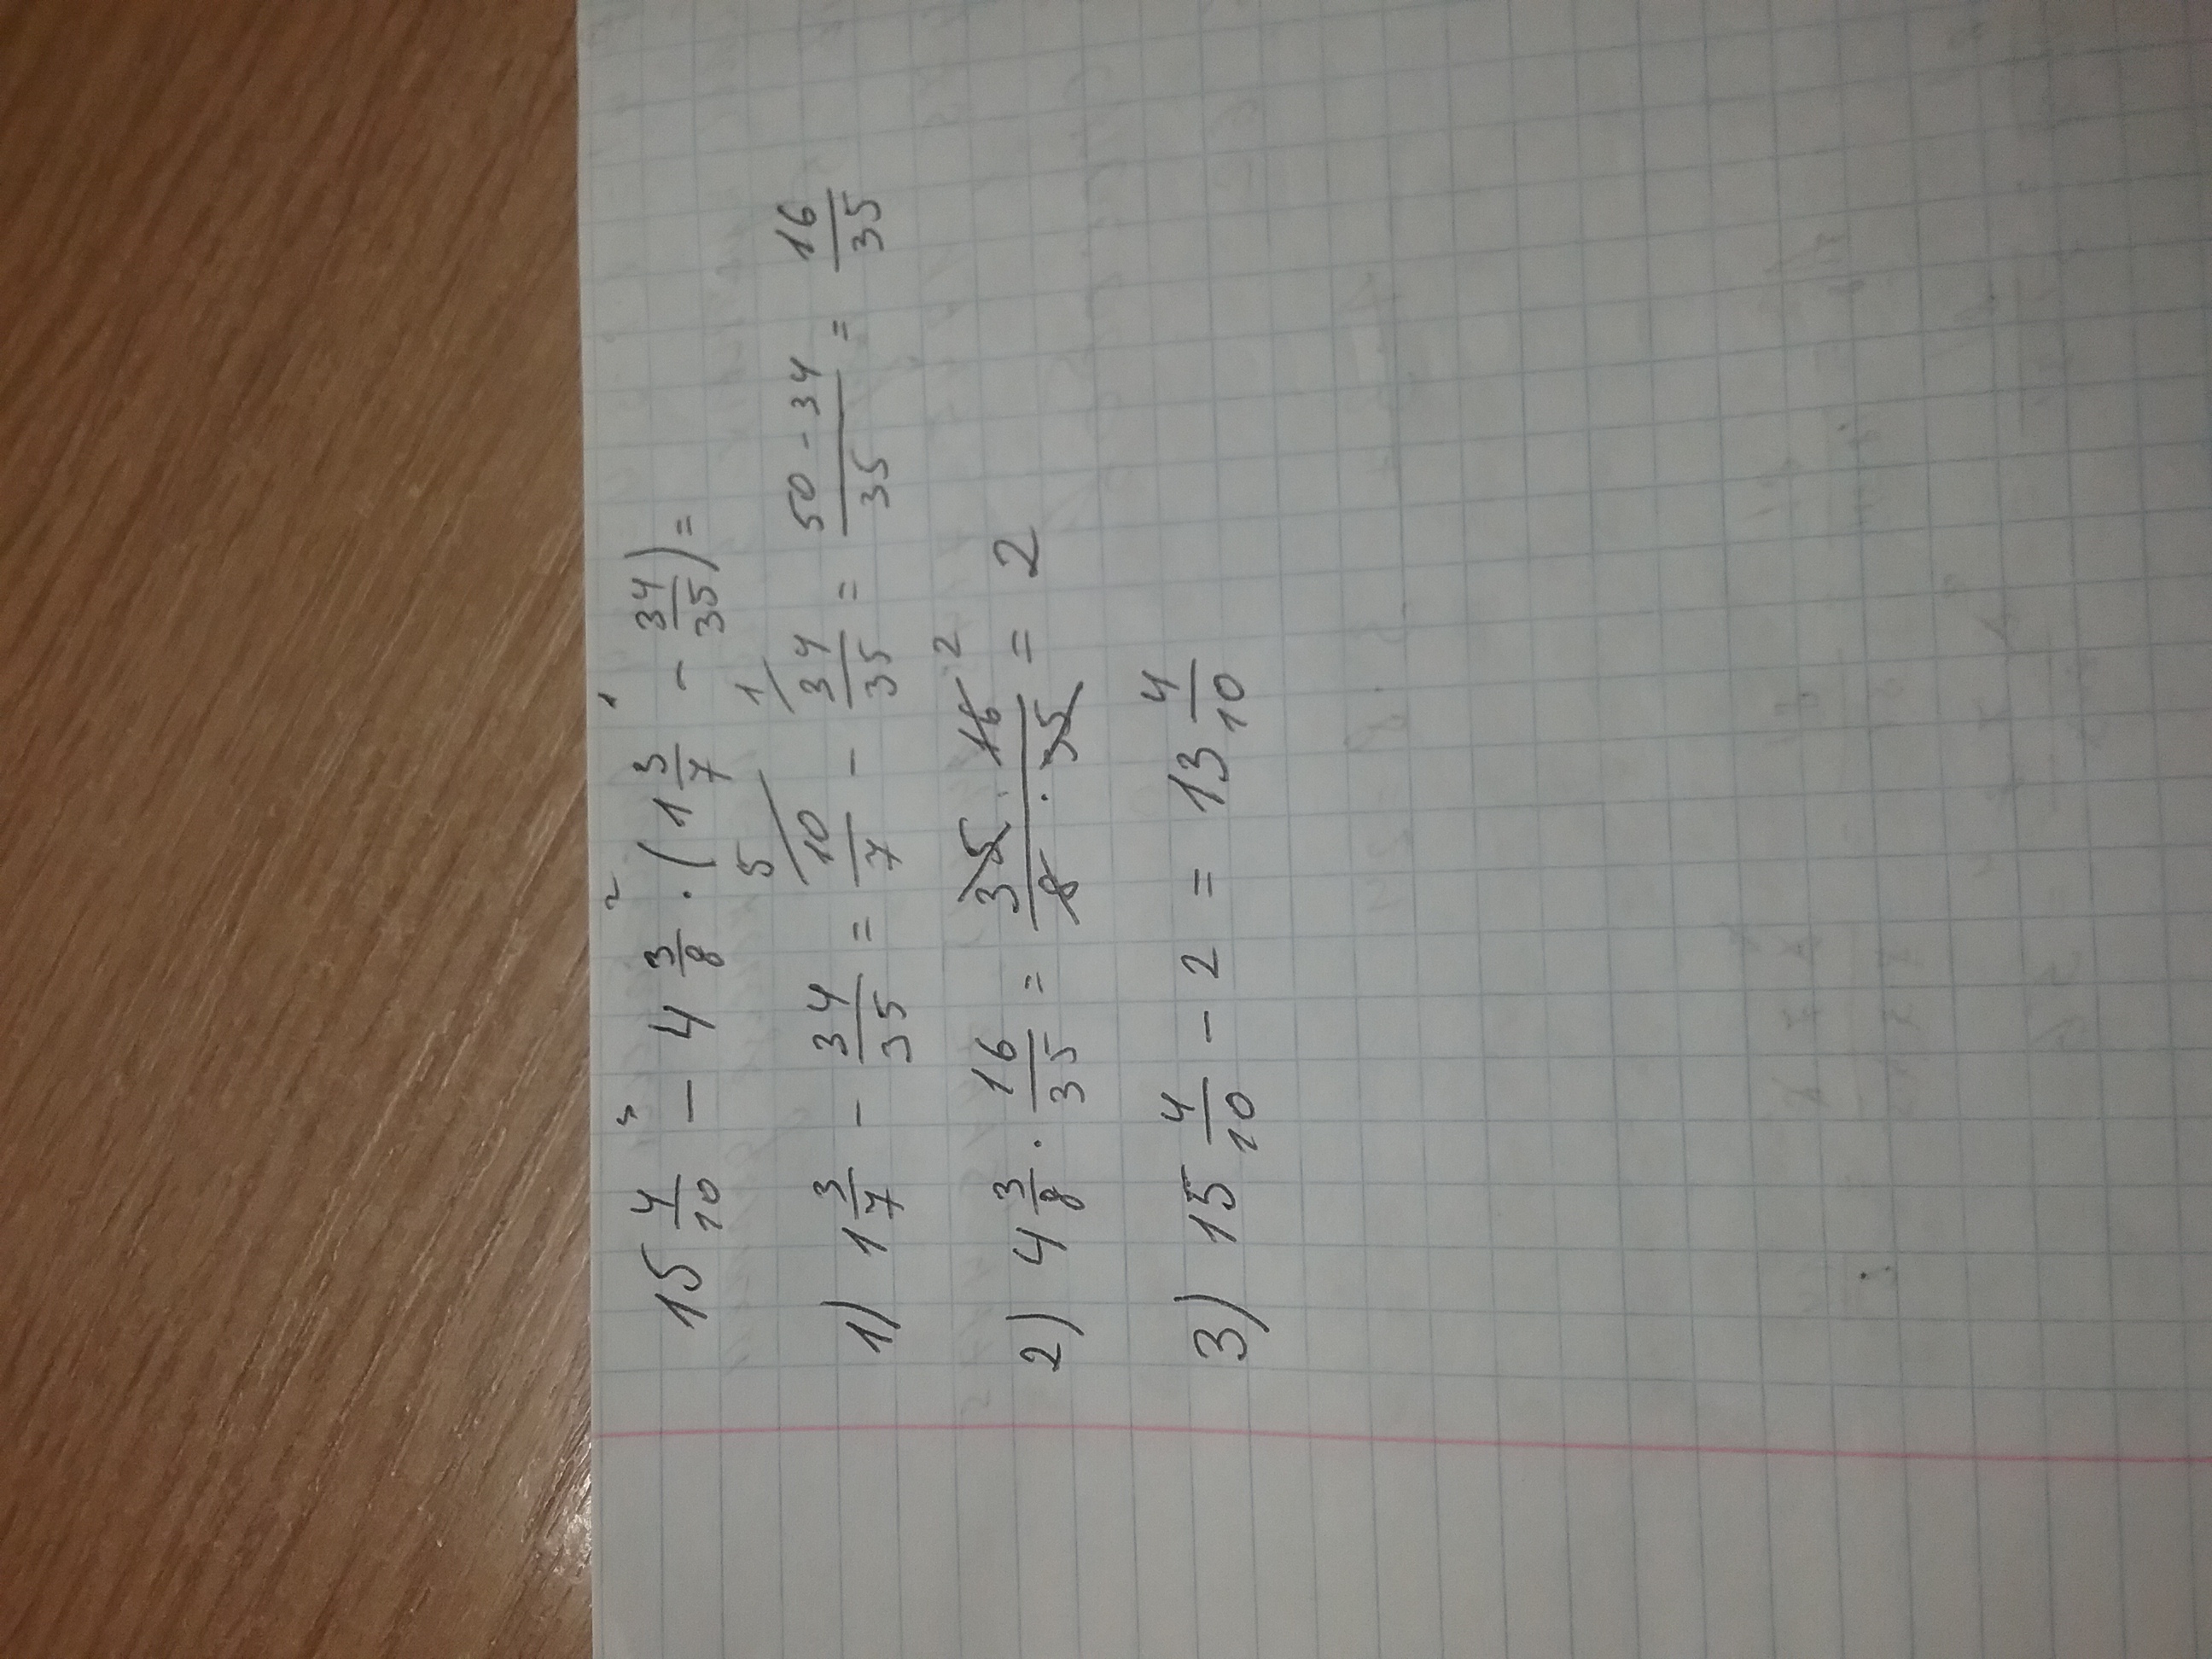 15 4/10 - 4 3/8 · (1 3/7 - 34/35) =
1) 1 3/7 - 34/35 = 10/7 - 34/35 = (50 - 34)/35 = 16/35
2) 4 3/8 · 16/35 = (35 · 16)/(8 · 35) = 2
3) 15 4/10 - 2 = 13 4/10